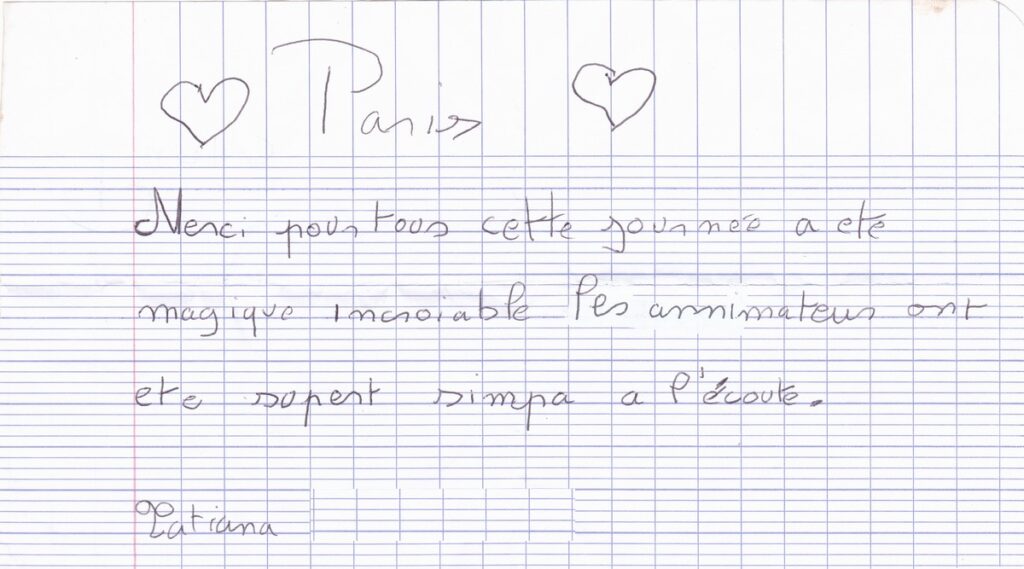 Paris
Merci pour tous cette journeé a eté
magique incroiable les annimateurs ont
ete supert simpa a l'écoute.
Tatiana